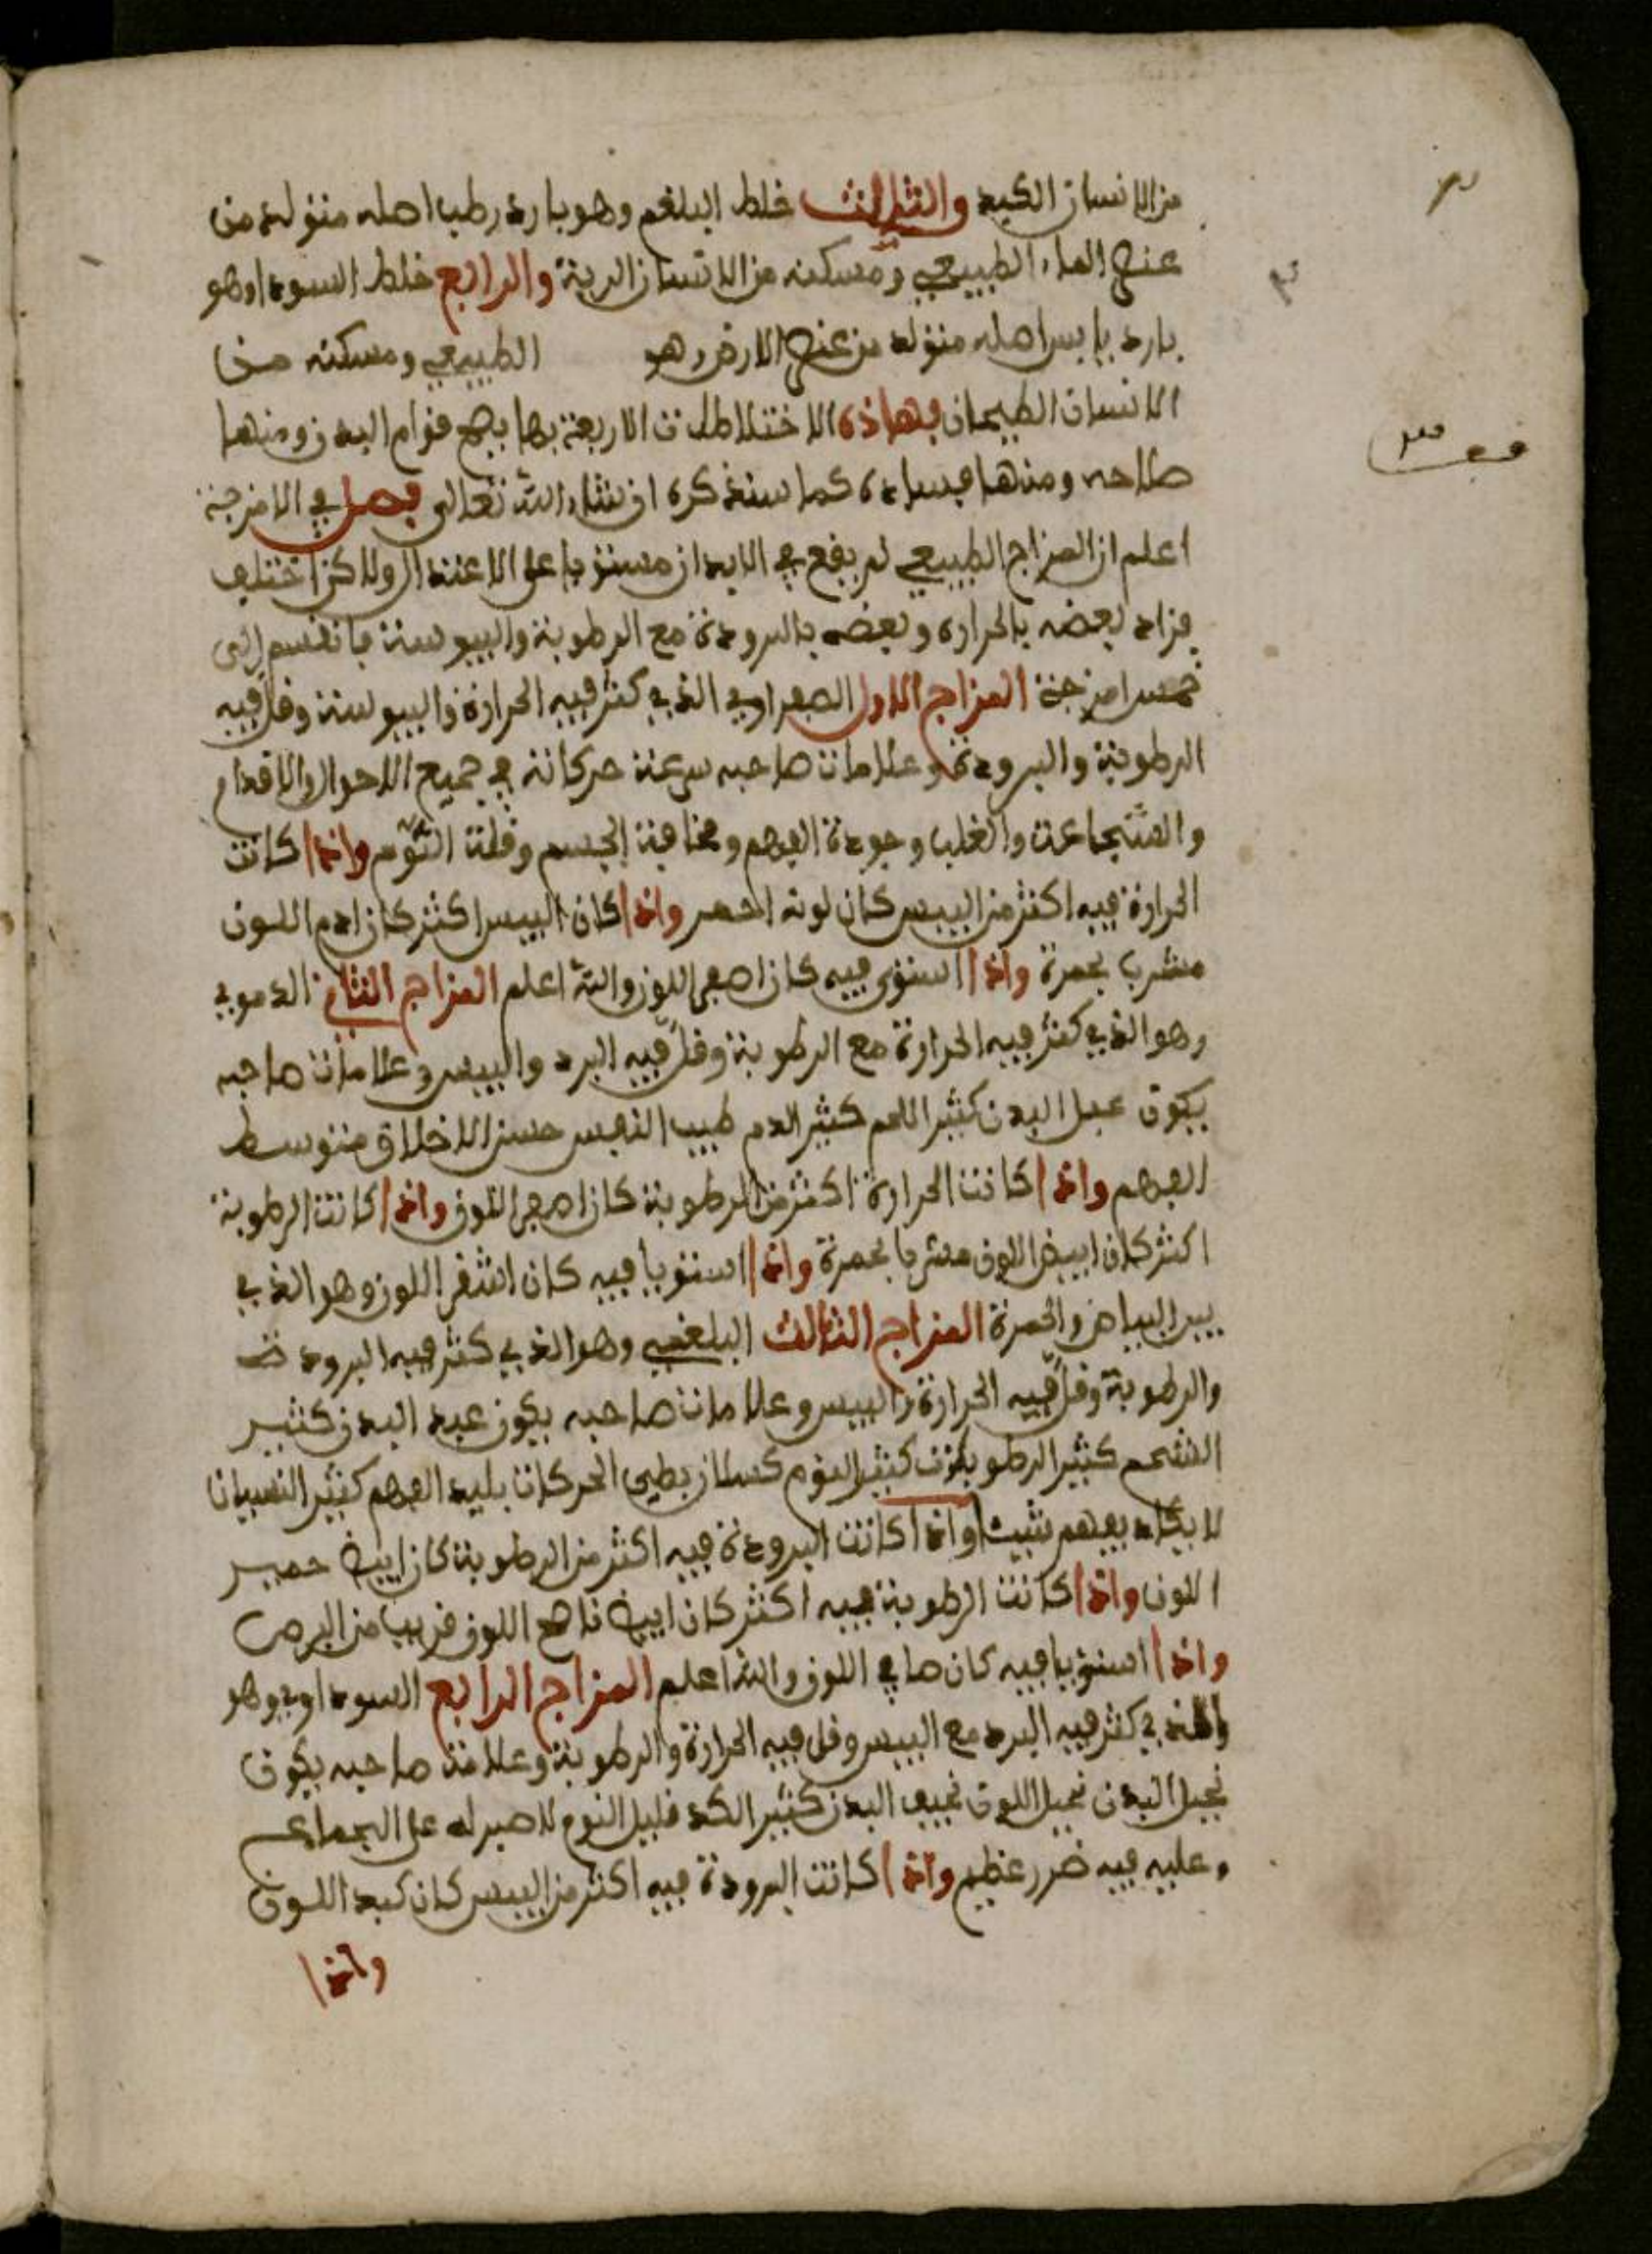 من الانسان الكبد والثالث خلط البلغم وهو بارد رطب اصله متولد من
عنصر الماء الطبيعي ومسكنه من الانسان الرية والرابع خلط السودا وهو
بارد يابس اصله متولد من عنصر الارض وهو الطبيعي ومسكنه من
الانسان الطيحان فهاذه الاختلاطات الاربعة بها يصح قوام البدن ومنها
صلاحه ومنها فساده كما سنذكره ان شاء الله تعالى فصل في الامزجة
اعلم ان المزاج الطبيعي لم يقع في الابدان مستويا على الاعتدال ولاكن اختلف
فزاد بعضه بالحرارة وبعضه بالبرودة مع الرطوبة واليبوسة فانقسم الى
خمس امزجة المزاج الاول الصفراوي الذي كثر فيه الحرارة واليبوسة وقل فيه
الرطوبة والبرودة وعلامات صاحبه سرعة حركاته في جميع الاحوال والاقدام
والشجاعة والغلب وجودة الفهم ونحافة الجسم وقلة النوم واذا كانت
الحرارة فيه اكثر من اليبس كان لونه احمر واذا كان اليبس اكثر كان ادم اللون
مشرب بحمرة واذا استوى فيه كان اصفر اللون والله اعلم المزاج الثاني الدموي
وهو الذي كثر فيه الحرارة مع الرطوبة وقل فيه البرد واليبس وعلامات صاحبه
يكون عبل البدن كثير اللحم كثير الدم طيب النفس حسن الاخلاق متوسط
الفهم واذا كانت الحرارة اكثر من الرطوبة كان اصفر اللون واذا كانت الرطوبة
اكثر كان ابيض اللون مشربا بحمرة واذا استويا فيه كان اشقر اللون وهو الذي
بين البياض والحمرة المزاج الثالث البلغمي وهو الذي كثر فيه البرودة
والرطوبة وقل فيه الحرارة واليبس وعلامات صاحبه يكون عبد البدن كثير
الشحم كثير الرطوبات كثير النوم كسلان بطيى الحركات بليد الفهم كثير النسيان
لا يكاد يفهم شيئا واذا كانت البرودة فيه اكثر من الرطوبة كان ابيض
اللون واذا كانت الرطوبة فيه اكثر كان ابيض ناصع اللون قريب من البرص
واذا استويا فيه كان صافي اللون والله اعلم المزاج الرابع السوداوي وهو
والذي كثر فيه البرد مع اليبس وقل فيه الحرارة والرطوبة وعلامة صاحبه يكون
نحيل البدن نحيل اللون نحيف البدن كثير الكد قليل النوم لا صبر له على الجماع
وعليه فيه ضرر عظيم واذا كانت البرودة فيه اكثر من اليبس كان كبد اللون
واذا